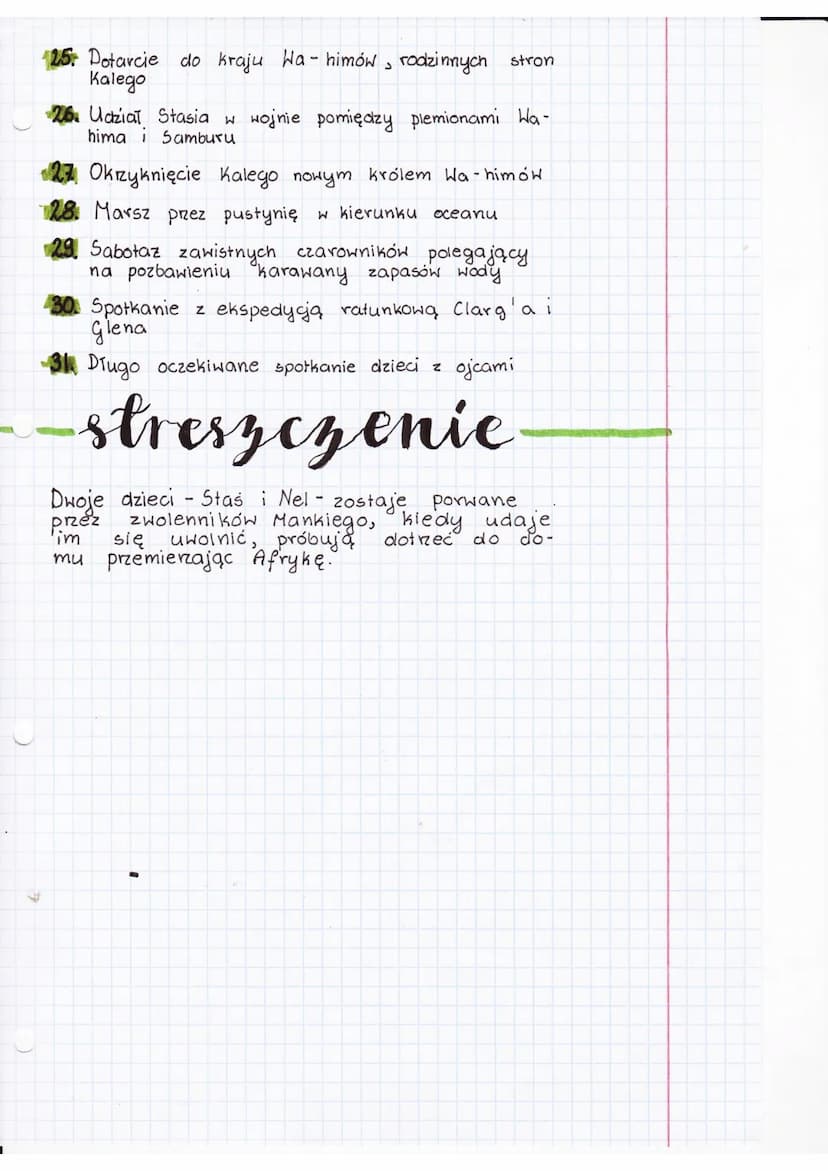 25. Dotarcie do kraju Wa-himów, rodzinnych stron
Kalego
26. Udział Stasia w wojnie pomiędzy plemionami Wa-
hima i Samburu
27. Okrzyknięcie Kalego nowym królem Wa-himów
28. Marsz przez pustynię w kierunku oceanu
29. Sabotaż zawistnych czarowników polegający
na pozbawieniu karawany zapasów wody
30. Spotkanie z ekspedycją ratunkową Clarq'a i
Glena
31. Długo oczekiwane spotkanie dzieci z ojcami
streszczenie
Dwoje dzieci - Staś i Nel - zostaje porwane
przez zwolenników Mankiego, kiedy udaje
im się uwolnić, próbują dotrzeć do do-
mu przemierzając Afrykę.